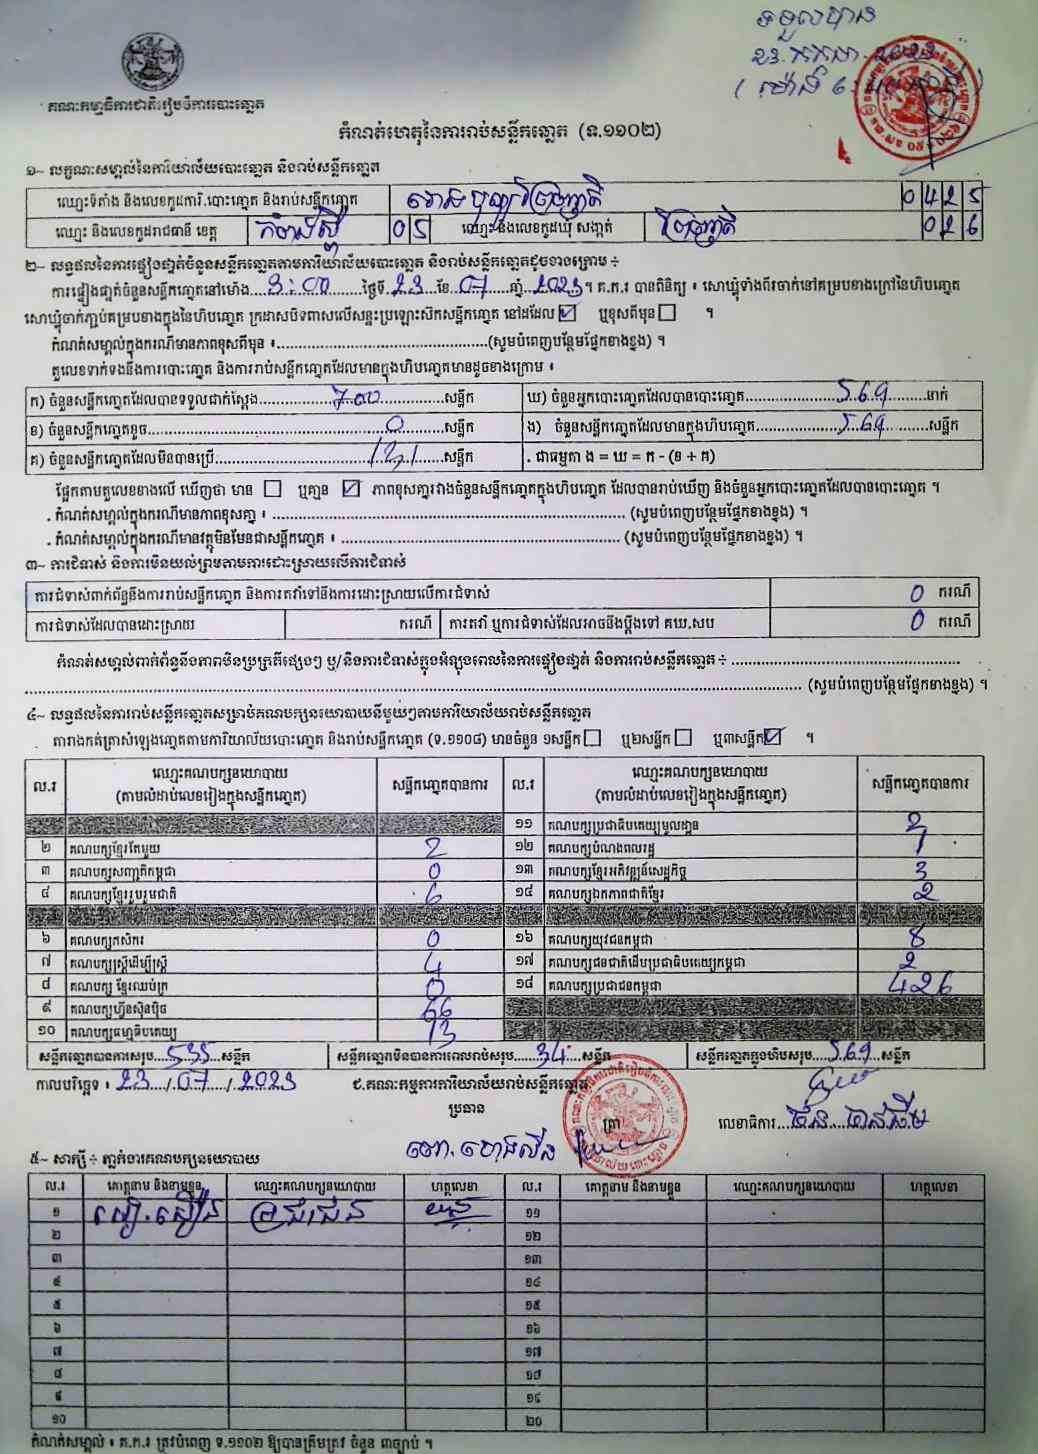 ទទួលបាន
គណៈកម្មាធិការជាតិរៀបចំការបោះឆ្នោត
កំណត់ហេតុនៃការរាប់សន្លឹកឆ្នោត (ទ.១១០២)
១~ លក្ខណៈសម្គាល់នៃការិយាល័យបោះឆ្នោត និងរាប់សន្លឹកឆ្នោត
ឈ្មោះទីតាំង និងលេខកូដការិ.បោះឆ្នោត និងរាប់សន្លឹកឆ្នោត 0425
ឈ្មោះ និងលេខកូដរាជធានី ខេត្ត កំពង់ស្ពឺ 05 ឈ្មោះ និងលេខកូដឃុំ សង្កាត់ 026
២~ លទ្ធផលនៃការផ្ទៀងផ្ទាត់ចំនួនសន្លឹកឆ្នោតតាមការិយាល័យបោះឆ្នោត និងរាប់សន្លឹកឆ្នោតដូចខាងក្រោម ÷
ការផ្ទៀងផ្ទាត់ចំនួនសន្លឹកឆ្នោតនៅម៉ោង 3:00 ថ្ងៃទី 23 ខែ 07 ឆ្នាំ 2023 ។ គ.ក.រ បានពិនិត្យ ៖ សោឃ្មុំទាំងពីរចាក់នៅគម្របខាងក្រៅនៃហិបឆ្នោត
សោឃ្មុំចាក់ភ្ជាប់គម្របខាងក្នុងនៃហិបឆ្នោត ក្រដាសបិទពាសលើសន្ទះប្រឡោះសឹកសន្លឹកឆ្នោត នៅដដែល ☑ ឬខុសពីមុន ☐ ។
កំណត់សម្គាល់ក្នុងករណីមានភាពខុសពីមុន ៖ (សូមបំពេញបន្ថែមផ្នែកខាងខ្នង) ។
តួលេខទាក់ទងនឹងការបោះឆ្នោត និងការរាប់សន្លឹកឆ្នោតដែលមានក្នុងហិបឆ្នោតមានដូចខាងក្រោម ៖
ក) ចំនួនសន្លឹកឆ្នោតដែលបានទទួលជាក់ស្តែង 700 សន្លឹក ឃ) ចំនួនអ្នកបោះឆ្នោតដែលបានបោះឆ្នោត 569 នាក់
ខ) ចំនួនសន្លឹកឆ្នោតខូច 0 សន្លឹក ង) ចំនួនសន្លឹកឆ្នោតដែលមានក្នុងហិបឆ្នោត 569 សន្លឹក
គ) ចំនួនសន្លឹកឆ្នោតដែលមិនបានប្រើ 131 សន្លឹក . ជាធម្មតា ង = ឃ = ក - (ខ + គ)
ផ្អែកតាមតួលេខខាងលើ ឃើញថា មាន ☐ ឬគ្មាន ☑ ភាពខុសគ្នារវាងចំនួនសន្លឹកឆ្នោតក្នុងហិបឆ្នោត ដែលបានរាប់ឃើញ និងចំនួនអ្នកបោះឆ្នោតដែលបានបោះឆ្នោត ។
. កំណត់សម្គាល់ក្នុងករណីមានភាពខុសគ្នា ៖ (សូមបំពេញបន្ថែមផ្នែកខាងខ្នង) ។
. កំណត់សម្គាល់ក្នុងករណីមានវត្ថុមិនមែនជាសន្លឹកឆ្នោត ៖ (សូមបំពេញបន្ថែមផ្នែកខាងខ្នង) ។
៣~ ការជំទាស់ និងការមិនយល់ព្រមតាមការដោះស្រាយលើការជំទាស់
ការជំទាស់ពាក់ព័ន្ធនឹងការរាប់សន្លឹកឆ្នោត និងការតវ៉ាទៅនឹងការដោះស្រាយលើការជំទាស់ 0 ករណី
ការជំទាស់ដែលបានដោះស្រាយ ករណី ការតវ៉ា ឬការជំទាស់ដែលអាចនឹងប្តឹងទៅ គឃ.សប 0 ករណី
កំណត់សម្គាល់ពាក់ព័ន្ធនឹងភាពមិនប្រក្រតីផ្សេងៗ ឬ/និងការជំទាស់ក្នុងអំឡុងពេលនៃការផ្ទៀងផ្ទាត់ និងការរាប់សន្លឹកឆ្នោត ÷
(សូមបំពេញបន្ថែមផ្នែកខាងខ្នង) ។
៤~ លទ្ធផលនៃការរាប់សន្លឹកឆ្នោតសម្រាប់គណបក្សនយោបាយនីមួយៗតាមការិយាល័យរាប់សន្លឹកឆ្នោត
តារាងកត់ត្រាសំឡេងឆ្នោតតាមការិយាល័យបោះឆ្នោត និងរាប់សន្លឹកឆ្នោត (ទ.១១០៨) មានចំនួន ១សន្លឹក ☐ ឬ២សន្លឹក ☐ ឬ៣សន្លឹក ☑ ។
ល.រ ឈ្មោះគណបក្សនយោបាយ (តាមលំដាប់លេខរៀងក្នុងសន្លឹកឆ្នោត) សន្លឹកឆ្នោតបានការ ល.រ ឈ្មោះគណបក្សនយោបាយ (តាមលំដាប់លេខរៀងក្នុងសន្លឹកឆ្នោត) សន្លឹកឆ្នោតបានការ
១១ គណបក្សប្រជាធិបតេយ្យមូលដ្ឋាន
២ គណបក្សខ្មែរតែមួយ 2 ១២ គណបក្សបំណងពលរដ្ឋ 1
៣ គណបក្សសញ្ជាតិកម្ពុជា 0 ១៣ គណបក្សខ្មែរអភិវឌ្ឍន៍សេដ្ឋកិច្ច 3
៤ គណបក្សខ្មែររួបរួមជាតិ 6 ១៤ គណបក្សឯកភាពជាតិខ្មែរ 2
៦ គណបក្សកសិករ 0 ១៦ គណបក្សយុវជនកម្ពុជា 8
៧ គណបក្សស្ត្រីដើម្បីស្ត្រី 4 ១៧ គណបក្សជនជាតិដើមប្រជាធិបតេយ្យកម្ពុជា 2
៨ គណបក្ស ខ្មែរឈប់ក្រ 0 ១៨ គណបក្សប្រជាជនកម្ពុជា 426
៩ គណបក្សហ៊្វុនស៊ិនប៉ិច 66
១០ គណបក្សធម្មាធិបតេយ្យ 13
សន្លឹកឆ្នោតបានការសរុប 535 សន្លឹក សន្លឹកឆ្នោតមិនបានការពេលរាប់សរុប 34 សន្លឹក សន្លឹកឆ្នោតក្នុងហិបសរុប 569 សន្លឹក
កាលបរិច្ឆេទ ៖ 23/07/2023 ជ.គណៈកម្មការការិយាល័យរាប់សន្លឹកឆ្នោត
ប្រធាន
លេខាធិការ
៥~ សាក្សី ÷ ភ្នាក់ងារគណបក្សនយោបាយ
ល.រ គោត្តនាម និងនាមខ្លួន ឈ្មោះគណបក្សនយោបាយ ហត្ថលេខា ល.រ គោត្តនាម និងនាមខ្លួន ឈ្មោះគណបក្សនយោបាយ ហត្ថលេខា
១ ប្រជាជន ១១
២ ១២
៣ ១៣
៤ ១៤
៥ ១៥
៦ ១៦
៧ ១៧
៨ ១៨
៩ ១៩
១០ ២០
កំណត់សម្គាល់ ៖ គ.ក.រ ត្រូវបំពេញ ទ.១១០២ ឱ្យបានត្រឹមត្រូវ ចំនួន ៣ច្បាប់ ។